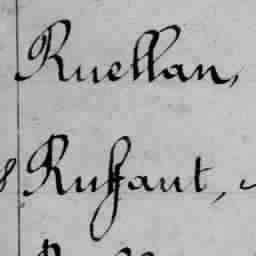 Ruellan,
Ruffaut,